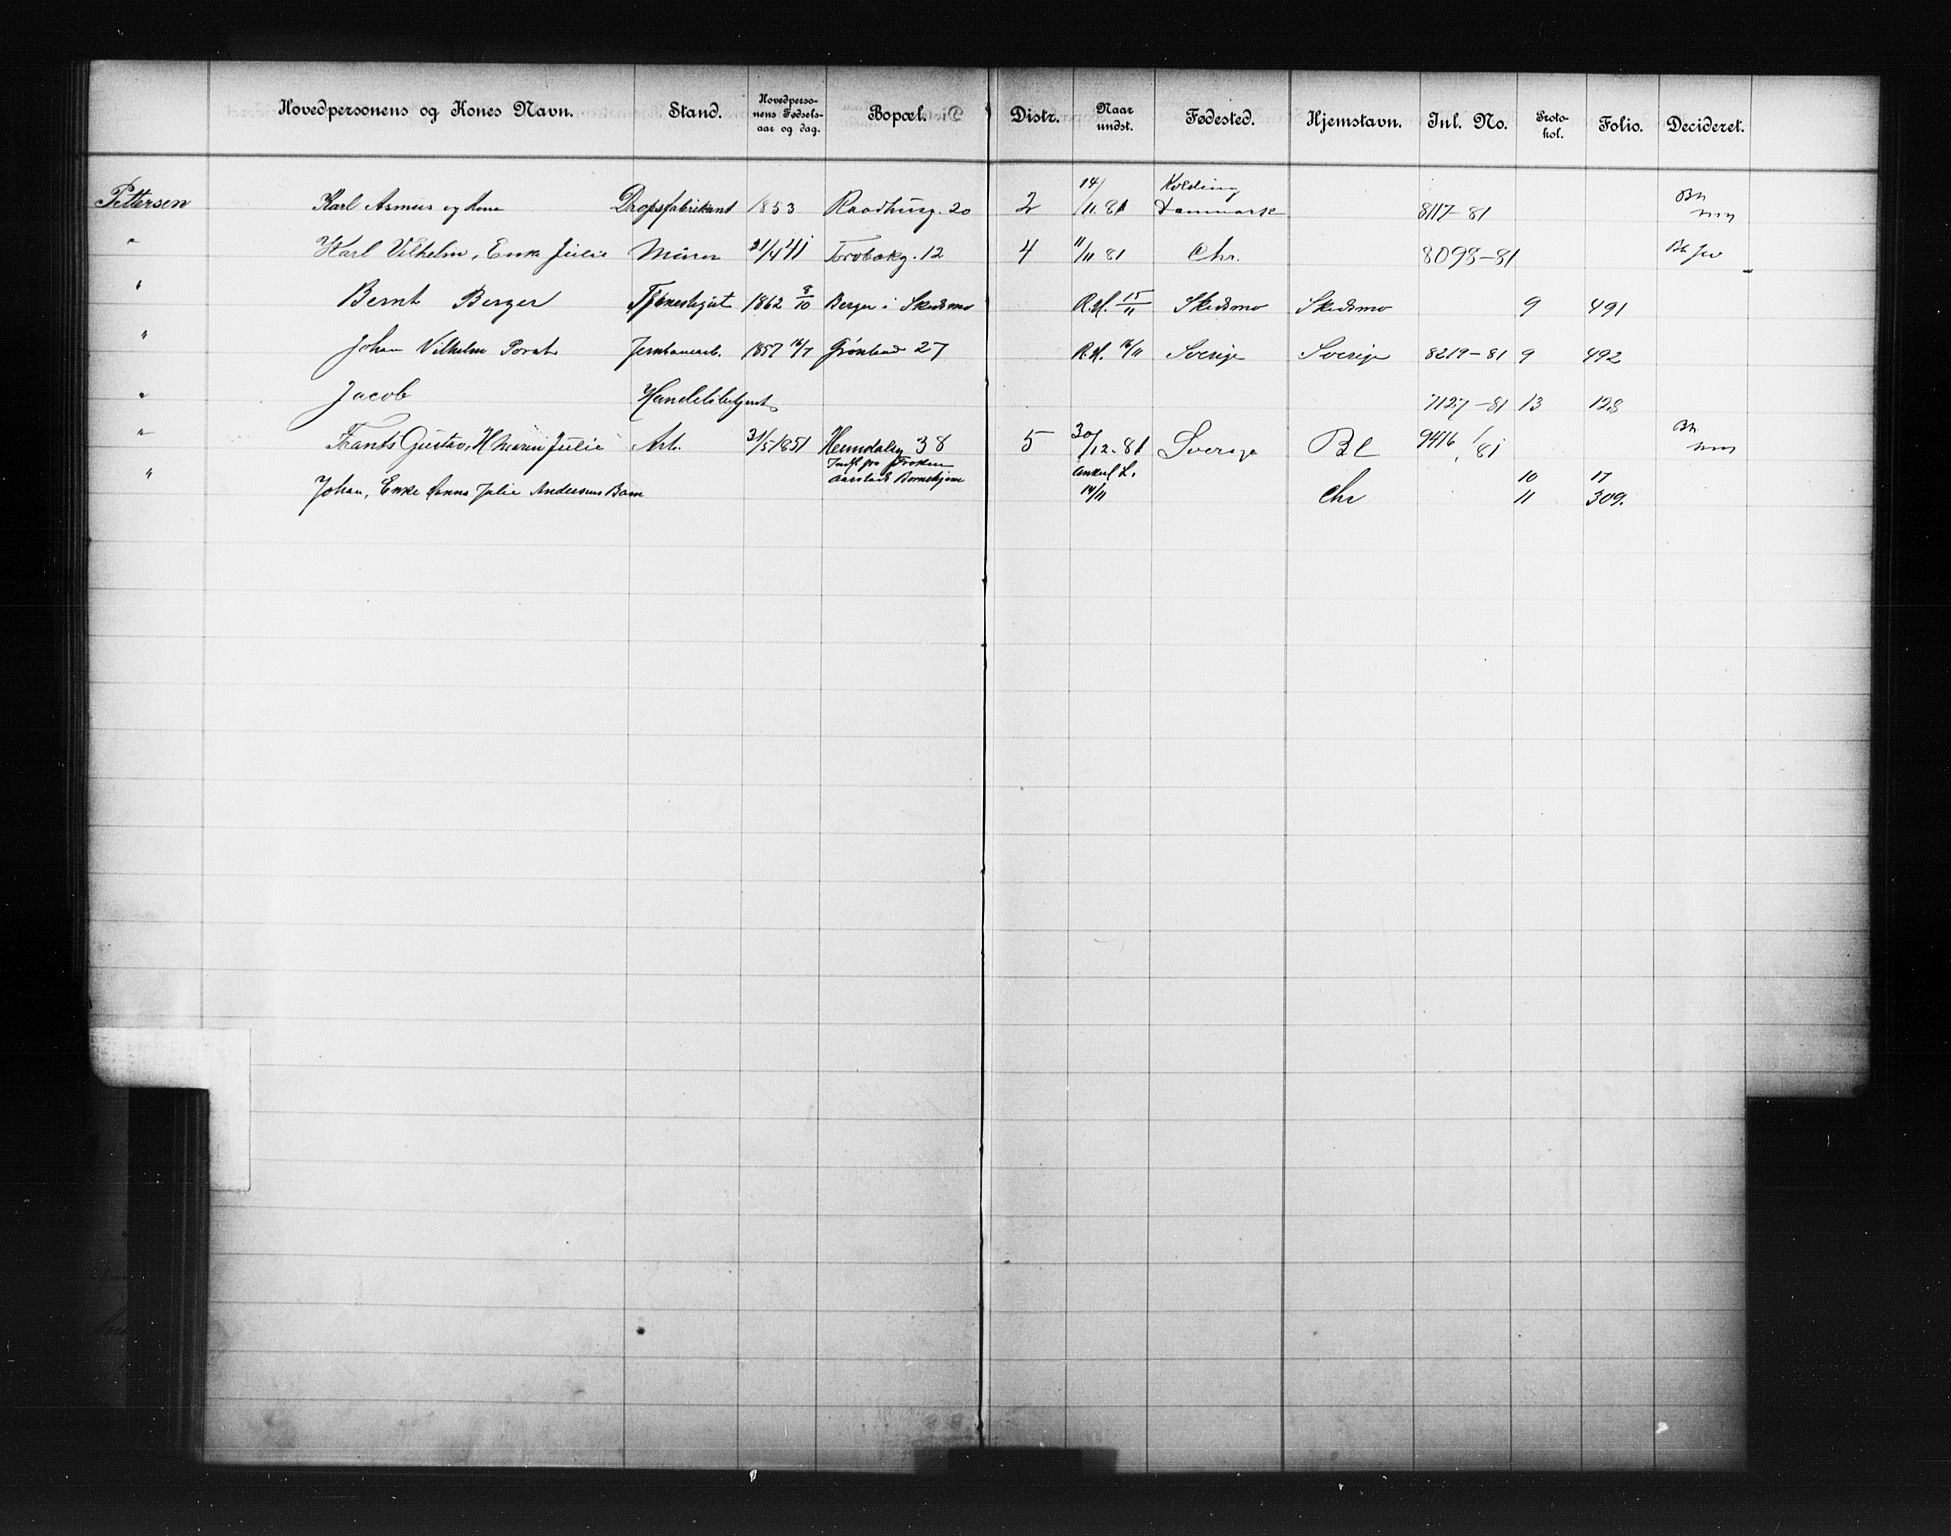 Hovedpersonens og Kones Navn. Stand. Hovedperso-nens Fødsels-aar og dag. Bopæl. Distr. Naar undst. Fødested. Hjemstavn. Inl. No. Proto-kol. Folio. Decideret.
Pettersen Karl Asmus og Kone Dropsfabrikant 1853 Raadhusg. 20 2 14/11.81 Kolding Danmark 8117-81 Bh
" Karl Vilhelm, Enke Julie Murer 21/4 41 Torvbakg. 12 4 11/11 81 Chr. 8098-81
" Bernt Berger Tjenestegut 1862 8/10 Berger i Skedsmo R.H. 15/11 Skedsmo Skedsmo 9 491
" Johan Vilhelm 1857 16/7 Grønland 27 R.H. 16/11 Sverige Sverige 8219-81 9 492
" Jacob Handelsbetjent 7127-81 13 128
" Frants Gustav, H Maren Julie Arb. 31/5 1851 Heimdalsg 38 5 30/12.81 Sverige Bl 9416/81 Bh
" Johan, Enke Anna Julie Andersens Barn Indl. fra Frøken Aarstads Børnehjem 14/11 Chr 10 17
11 309.